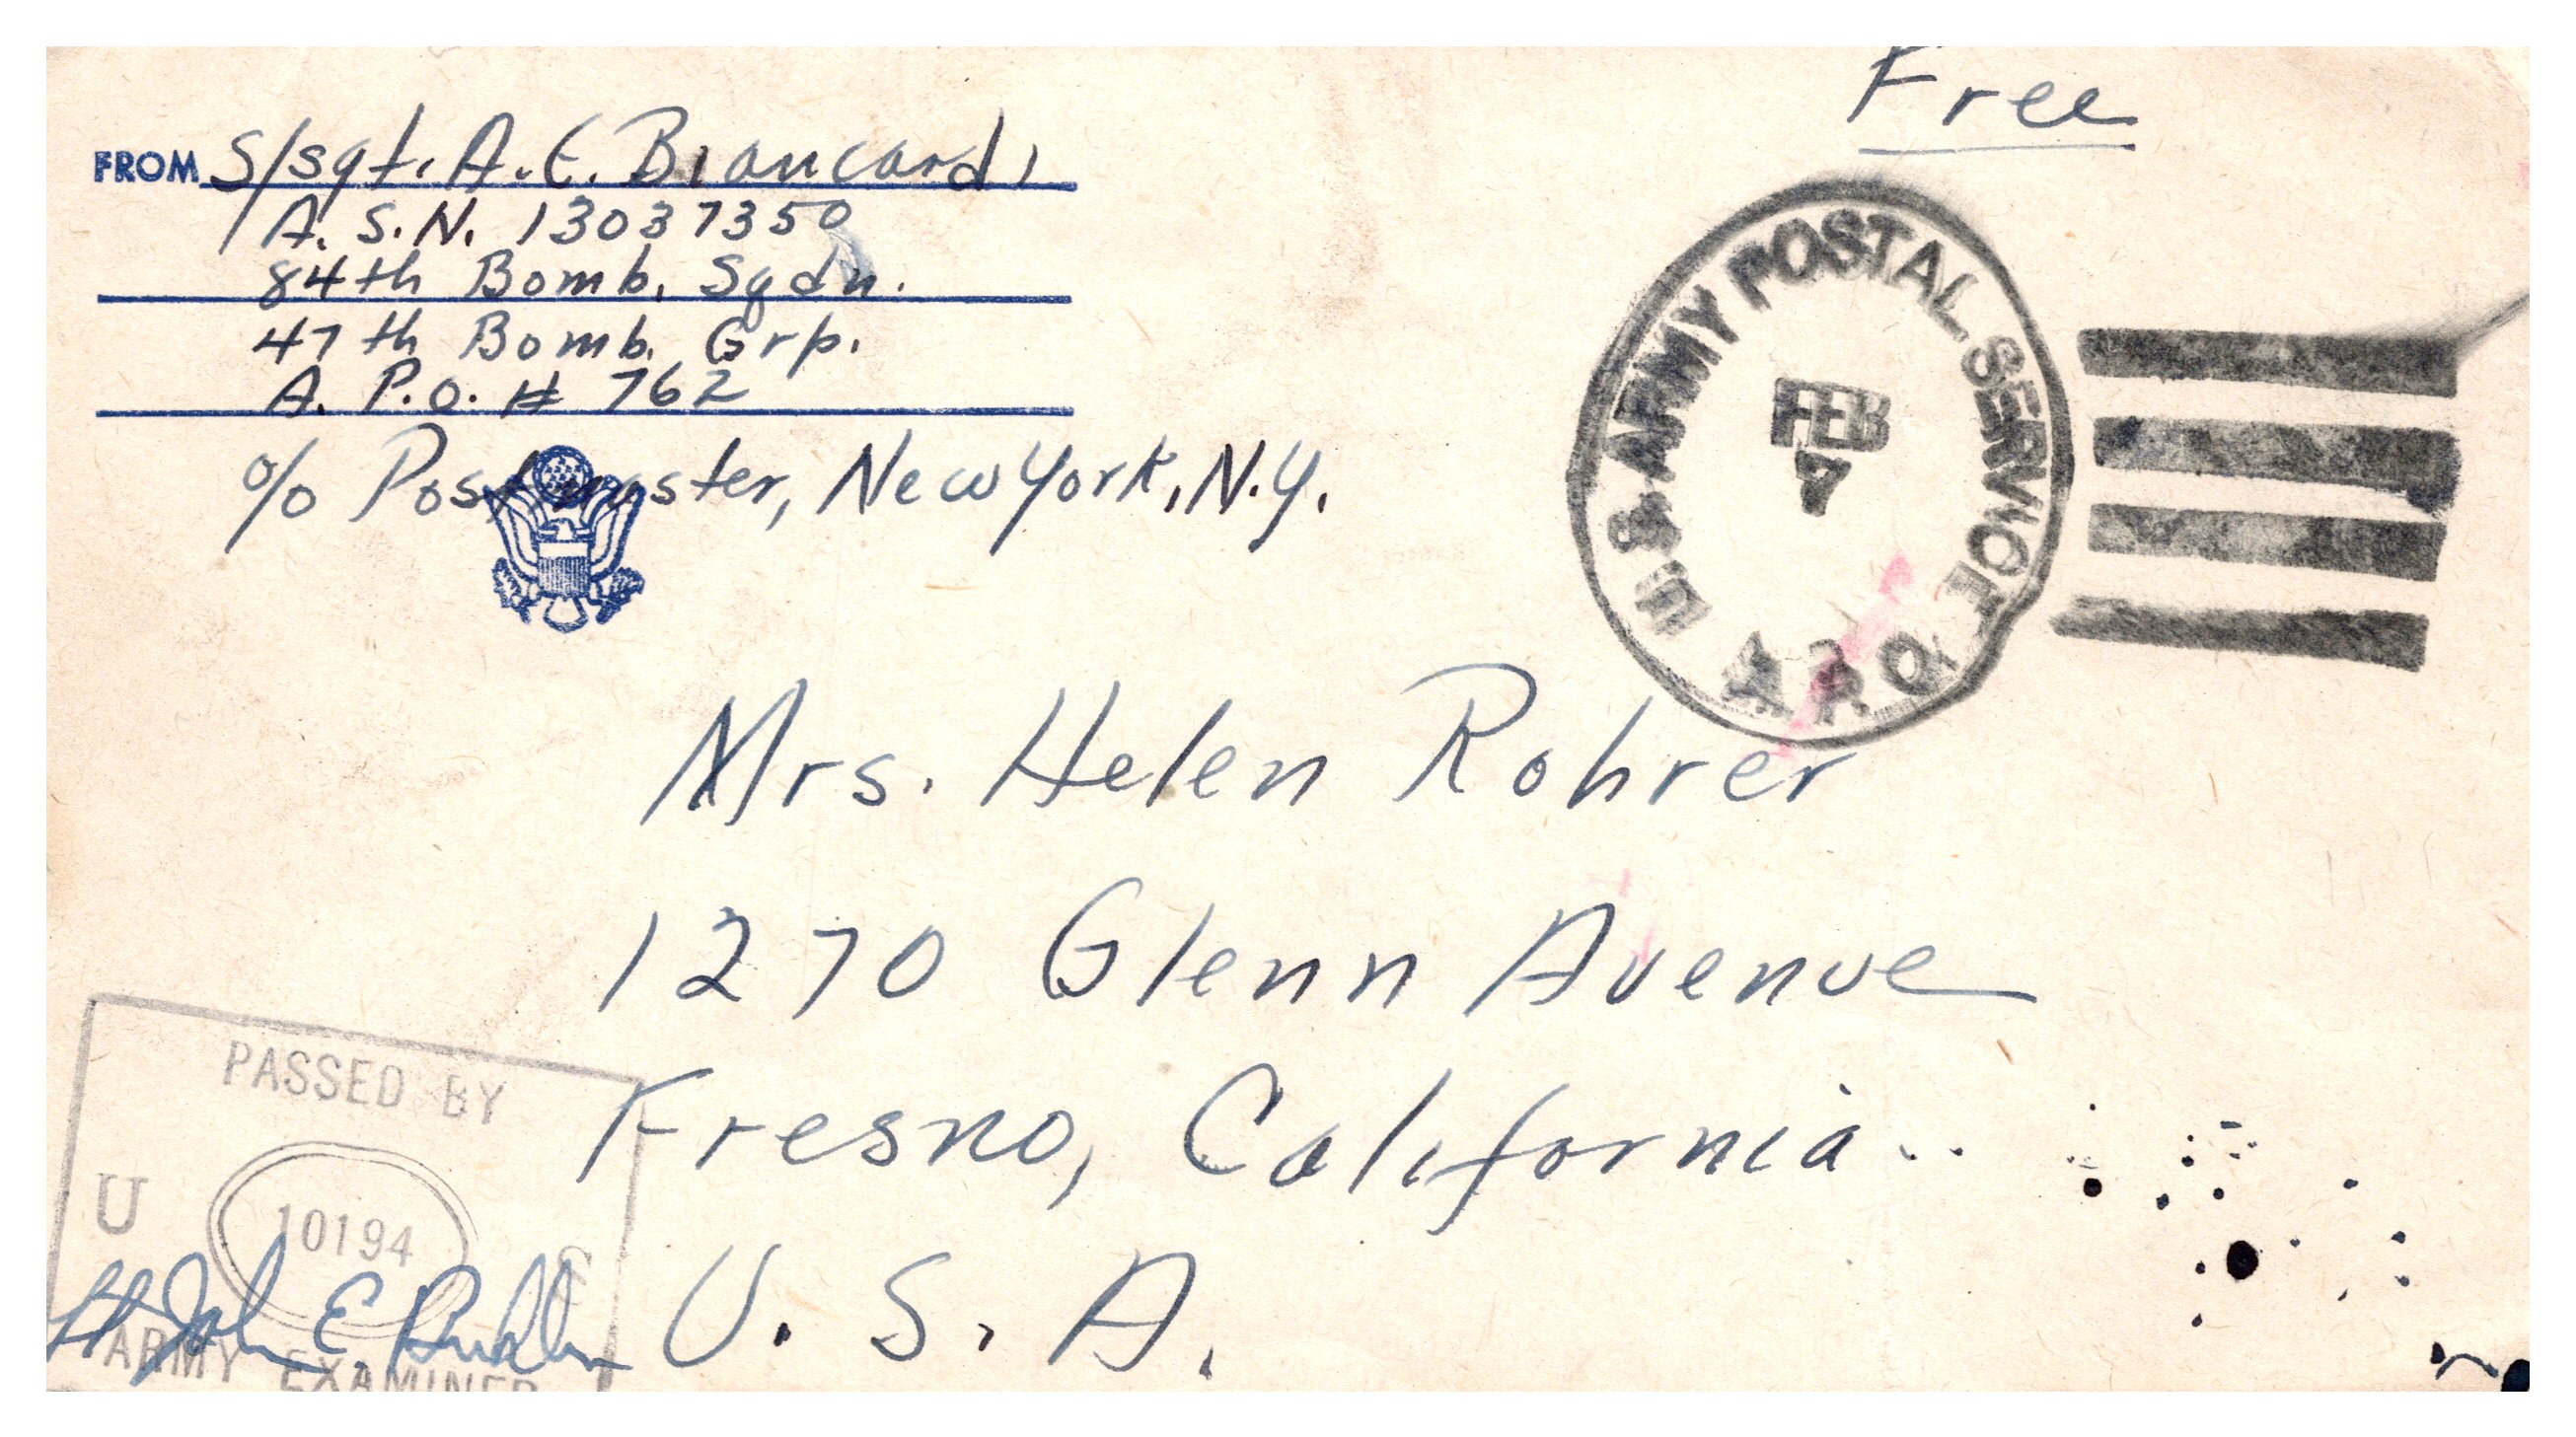 Free
FROM S/sgt. A. E. Biancardi
A. S. N. 13037350
84th Bomb. Sqdn.
47th Bomb. Grp.
A. P. O. # 762
c/o Postmaster, New York, N.Y.
U.S. ARMY POSTAL SERVICE
FEB
7
A.P.O.
Mrs. Helen Rohrer
1270 Glenn Avenue
Fresno, California..
U. S. A.
PASSED BY
U S
10194
Lt John E.
ARMY EXAMINER